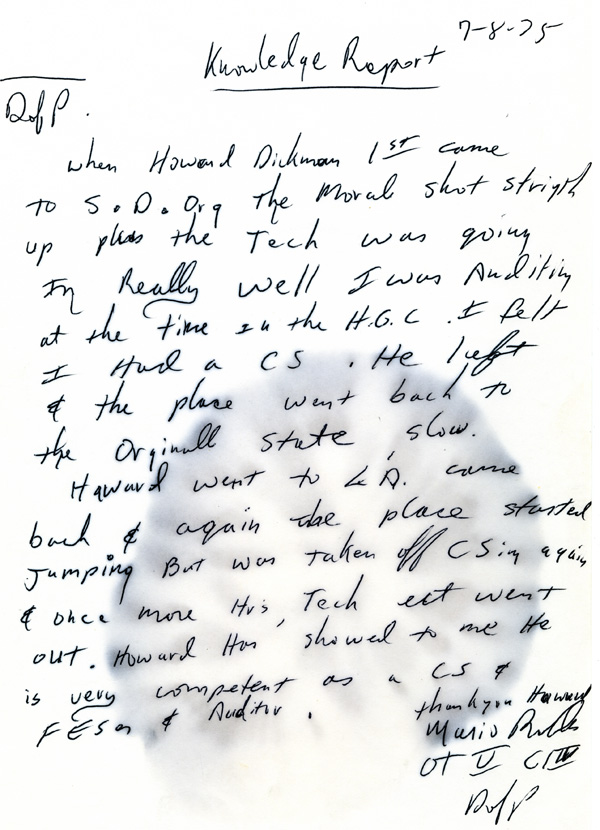 7-8-75
Knowledge Report
DofP.
when Howard Dickman 1st came
to S.O. Org the Moral shot strigth
up plus the Tech was going
In Really well I was Auditing
at the time In the H.G.C. I felt
I Had a CS. He left
& the place went back to
the Orginall state, slow.
Howard went to L.A. came
back & again the place started
Jumping But was taken off CSing again
& once more Hrs, Tech ect went
out. Howard Has showed to me He
is very competent as a CS &
FESer & Auditor.
thankyou Howard
Mario
OT II CIIV
DofP